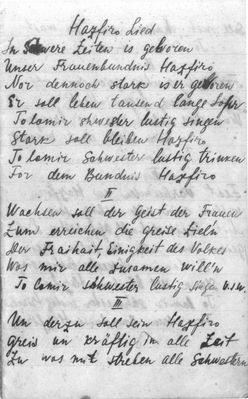 Hazfiro Lied
In Schwere Zeiten is geboren
Unser Frauenbundnis Hazfiro
Nor dennoch stark is er geboren
Er soll leben tausend lange Johr
To lomir shwester lustig singen
Stark soll bleiben Hazfiro
To lomir Schwester lustig trinken
For dem Bundnis Hazfiro
II
Wachsen soll der Geist der Frauen
Zum erreichen die greise Zieln
Der Fraihait, Einigkeit des Volkes
Was mir alle zusamen will'n
To lomir schwester lustig singen u.s.w.
III
Un derzu soll sein Hazfiro
greis un kräftig im alle Zeit
Zu was mit streben alle Schwestern